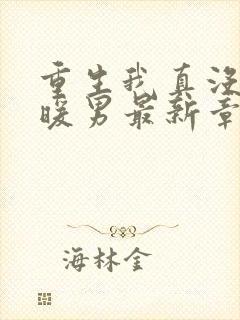 重生我真没
暖男最新章
海林金